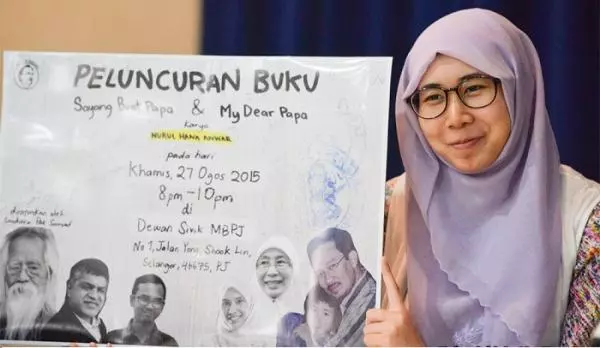 PELUNCURAN BUKU
Sayang Buat Papa & My Dear Papa
Karya
NURUL HANA ANWAR
pada hari
Khamis, 27 Ogos 2015
8pm-10pm
di
Dewan Sivik MBPJ
No 1, Jalan Yong Shook Lin,
Selangor, 46675, PJ
dirasmikan oleh
Pak Samad